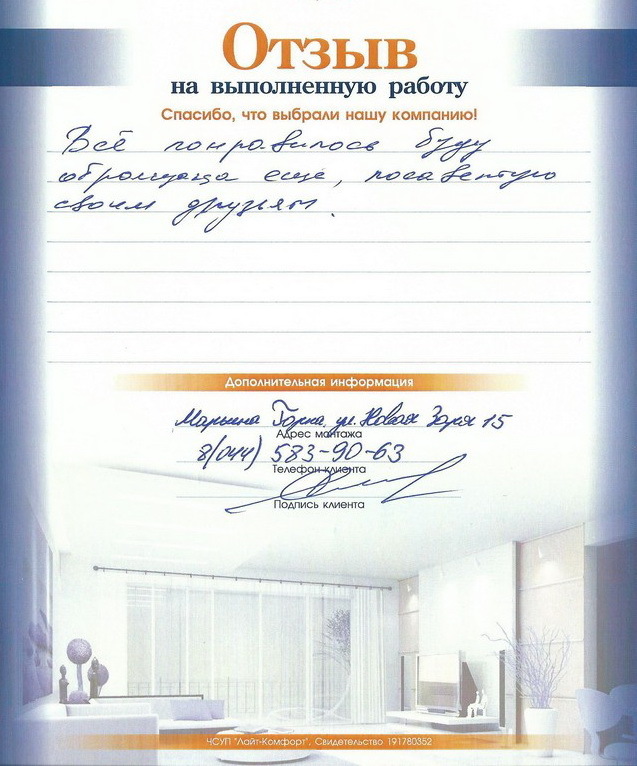 Отзыв
на выполненную работу
Спасибо, что выбрали нашу компанию!
Всё понравилось буду
обращаца еще, посаветую
своим друзьям.
Дополнительная информация
Марьина Горка, ул. Новая Заря 15
Адрес монтажа
8(044) 583-90-63
Телефон клиента
Подпись клиента
ЧСУП "Лайт-Комфорт". Свидетельство 191780352